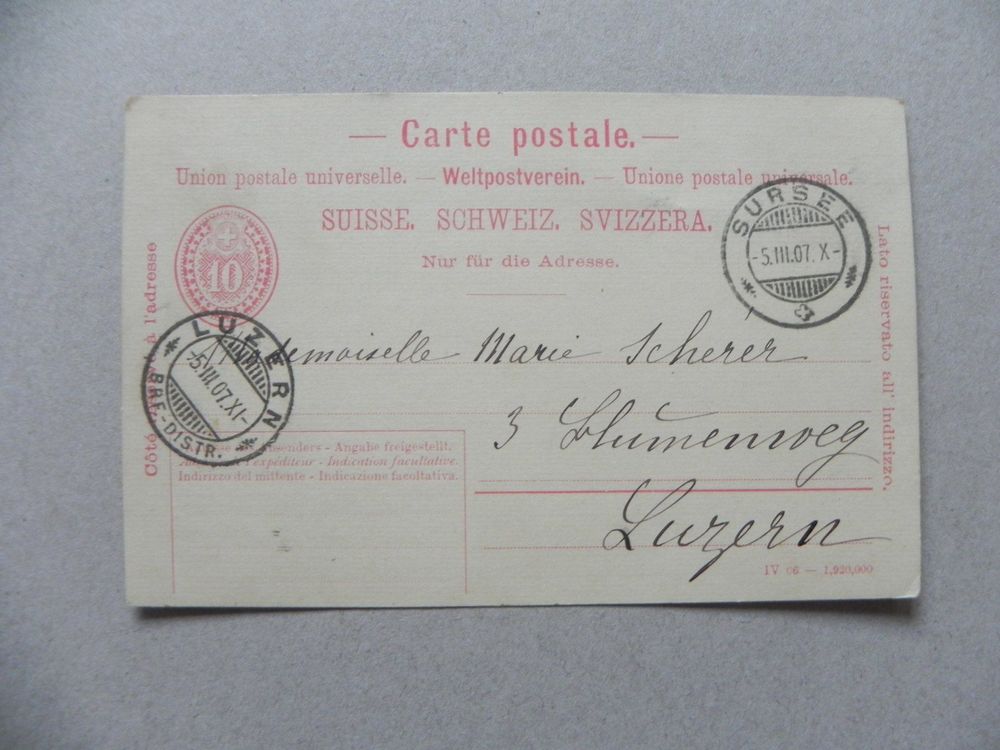 — Carte postale. —
Union postale universelle. — Weltpostverein. — Unione postale universale.
SUISSE. SCHWEIZ. SVIZZERA.
Nur für die Adresse.
10
Côté à l'adresse
Lato riservato all' indirizzo.
SURSEE
-5.III.07. X-
LUZERN
-5.III.07.XI-
BRF.-DISTR.
Mademoiselle Marie Scherer
3 Blumenweg
Luzern
- Angabe freigestellt.
l'expéditeur - Indication facultative.
Indirizzo del mittente - Indicazione facoltativa.
IV 06 — 1,920,000